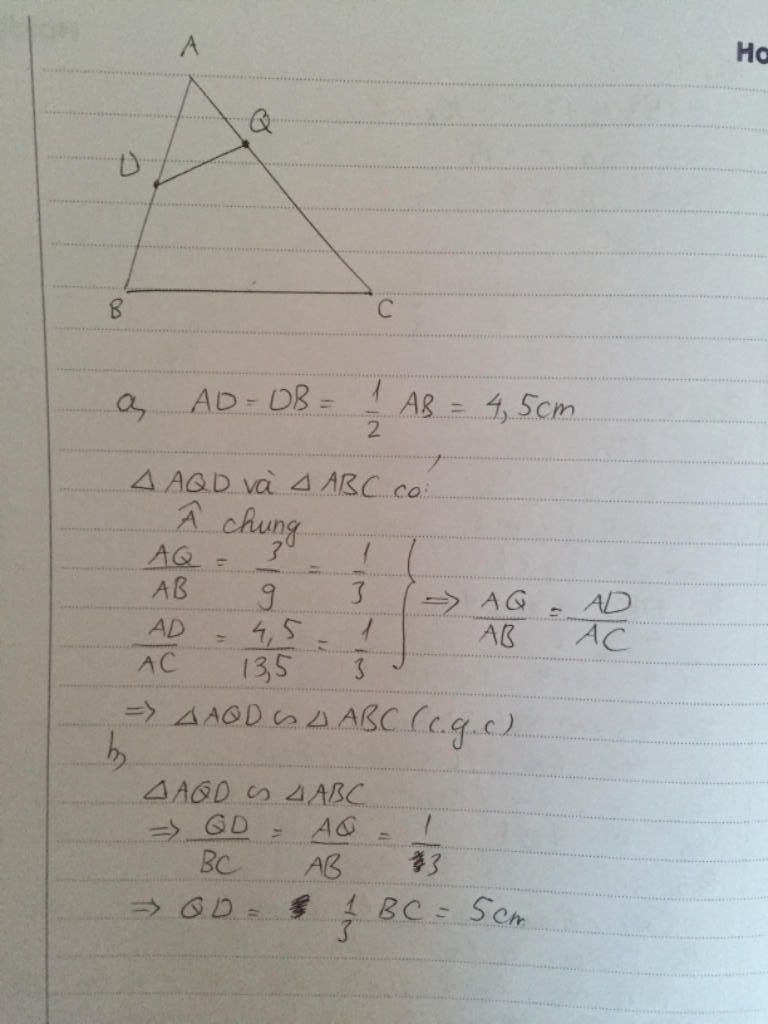 Ho
A
Q
D
B
C
a, AD = DB = 1/2 AB = 4,5cm
△AQD và △ABC có:
Â chung
AQ/AB = 3/9 = 1/3
AD/AC = 4,5/13,5 = 1/3
} => AQ/AB = AD/AC
=> △AQD ∽ △ABC (c.g.c)
b,
△AQD ∽ △ABC
=> QD/BC = AQ/AB = 1/3
=> QD = 1/3 BC = 5cm